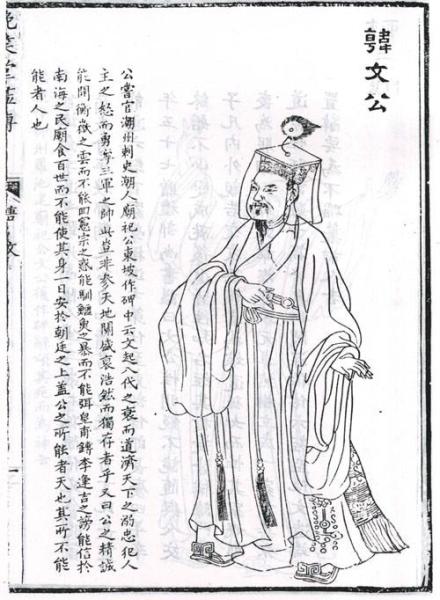 韓文公
公嘗官潮州刺史潮人廟祀公東坡作碑中云文起八代之衰而道濟天下之溺忠犯人
主之怒而勇奪三軍之帥此豈非參天地關盛衰浩然而獨存者乎又曰公之精誠
能開衡嶽之雲而不能回憲宗之惑能馴鱷魚之暴而不能弭皇甫鎛李逢吉之謗能信於
南海之民廟食百世而不能使其身一日安於朝廷之上蓋公之所能者天也其所不
能者人也
晚笑堂畫傳